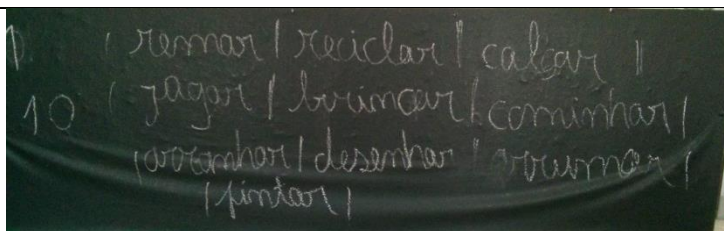 1 | remar | reciclar | calçar ||
10 | jagar | brincar | cominhar |
| desenhar | arrumar |
| pintar |